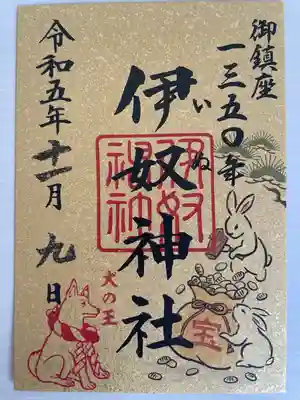 御鎮座
一三五〇年
伊奴神社
いぬ
伊奴神社
犬の王
宝
令和五年十一月九日